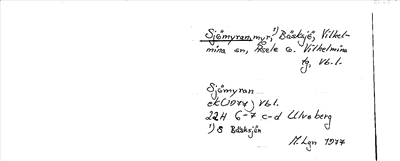 Sjömyran, myr, ¹) Bäsksjö, Vilhel-
mina sn, Åsele o. Vilhelmina
tg, Vb. l.
Sjömyran
ek(1977) Vb l.
22H 6-7 c-d Ulvoberg
¹) S Bäsksjön
M. Lgn 1977